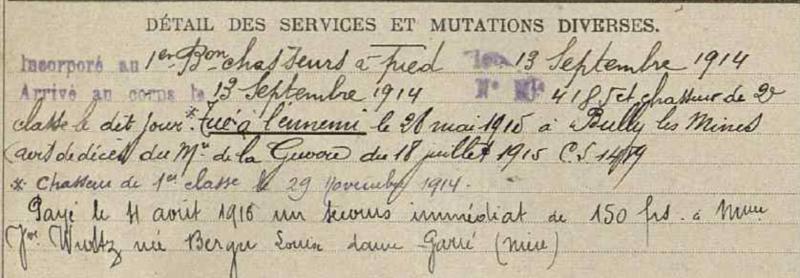 DÉTAIL DES SERVICES ET MUTATIONS DIVERSES.
Incorporé au 1er Bon chasseurs à Pied le 13 Septembre 1914
Arrivé au corps le 13 Septembre 1914 N° Mle 4185 et chasseur de 2e
classe le dit jour. * tué à l'ennemi le 26 mai 1915 à Bully les Mines
(avis de décès du Mre de la Guerre du 18 juillet 1915
* Chasseur de 1er classe le 29 novembre 1914.
Payé le 11 août 1916 un secours immédiat de 150 frs. à Mme
Wurtz née dame Garré (mère)